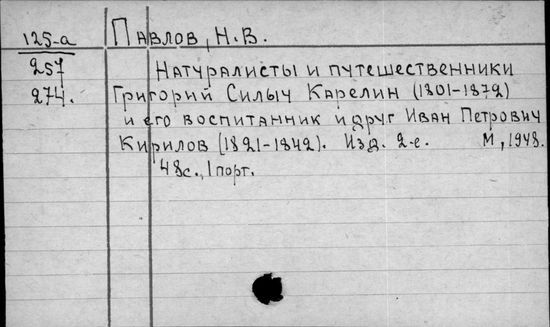 125-а
Павлов, Н.В.
257
274.
Натуралисты и путешественники
Григорий Силыч Карелин (1801-1872)
и его воспитанник и друг Иван Петрович
Кирилов (1821-1842). Изд. 2-е. М, 1948.
48с., 1 порт.